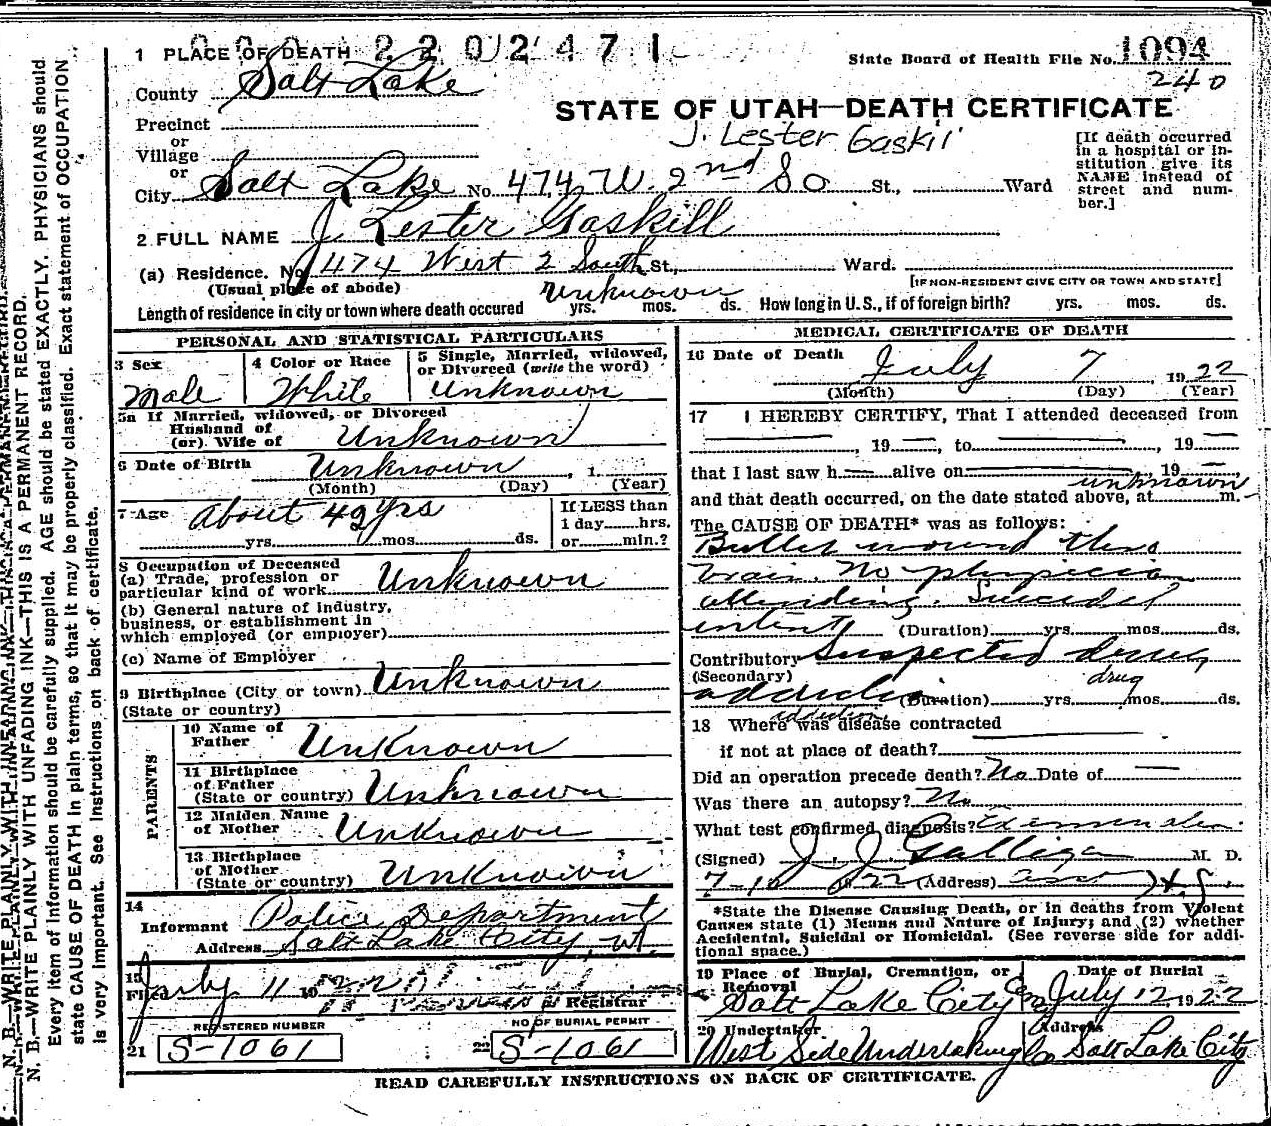 000 2202471
1 PLACE OF DEATH
State Board of Health File No. 1094
240
County Salt Lake
STATE OF UTAH—DEATH CERTIFICATE
J. Lester Gaskill
Precinct
or
Village
or
City Salt Lake No. 474 W. 2nd So St., Ward
[If death occurred in a hospital or institution give its NAME instead of street and number.]
2 FULL NAME J. Lester Gaskill
(a) Residence. No. 474 West 2 South St., Ward.
(Usual place of abode)
[IF NON-RESIDENT GIVE CITY OR TOWN AND STATE]
Length of residence in city or town where death occured Unknown yrs. mos. ds. How long in U.S., if of foreign birth? yrs. mos. ds.
PERSONAL AND STATISTICAL PARTICULARS
3 Sex
Male
4 Color or Race
White
5 Single, Married, widowed, or Divorced (write the word)
Unknown
5a If Married, widowed, or Divorced
Husband of
(or) Wife of Unknown
6 Date of Birth Unknown, 1
(Month) (Day) (Year)
7 Age About 42 yrs
yrs. mos. ds.
If LESS than
1 day hrs.
or min.?
8 Occupation of Deceased
(a) Trade, profession or
particular kind of work Unknown
(b) General nature of industry,
business, or establishment in
which employed (or employer)
(c) Name of Employer
9 Birthplace (City or town) Unknown
(State or country)
PARENTS
10 Name of
Father Unknown
11 Birthplace
of Father
(State or country) Unknown
12 Maiden Name
of Mother Unknown
13 Birthplace
of Mother
(State or country) Unknown
14
Informant Police Department
Address Salt Lake City, Ut.
15
Filed July 11 19
Registrar
REGISTERED NUMBER
21 S-1061
NO OF BURIAL PERMIT
22 S-1061
MEDICAL CERTIFICATE OF DEATH
16 Date of Death July 7 1922
(Month) (Day) (Year)
17 I HEREBY CERTIFY, That I attended deceased from
, 19 , to , 19
that I last saw h alive on , 19
unknown
and that death occurred, on the date stated above, at m.
The CAUSE OF DEATH* was as follows:
Bullet wound thro
brain. No physician
attending. Suicidal
intent (Duration) yrs. mos. ds.
Contributory Suspected drug
(Secondary)
drug
addiction (Duration) yrs. mos. ds.
addiction
18 Where was disease contracted
if not at place of death?
Did an operation precede death? No Date of
Was there an autopsy? No
What test confirmed diagnosis?
(Signed) J. J. Galligan M. D.
7-10 1922 (Address)
*State the Disease Causing Death, or in deaths from Violent
Causes state (1) Means and Nature of Injury; and (2) whether
Accidental, Suicidal or Homicidal. (See reverse side for additional space.)
19 Place of Burial, Cremation, or Removal
Salt Lake City Cem
Date of Burial
July 12 1922
20 Undertaker
West Side Undertaking Co
Address
Salt Lake City
READ CAREFULLY INSTRUCTIONS ON BACK OF CERTIFICATE.
N. B.—WRITE PLAINLY WITH UNFADING INK—THIS IS A PERMANENT RECORD.
Every item of information should be carefully supplied. AGE should be stated EXACTLY. PHYSICIANS should
state CAUSE OF DEATH in plain terms, so that it may be properly classified. Exact statement of OCCUPATION
is very important. See Instructions on back of certificate.